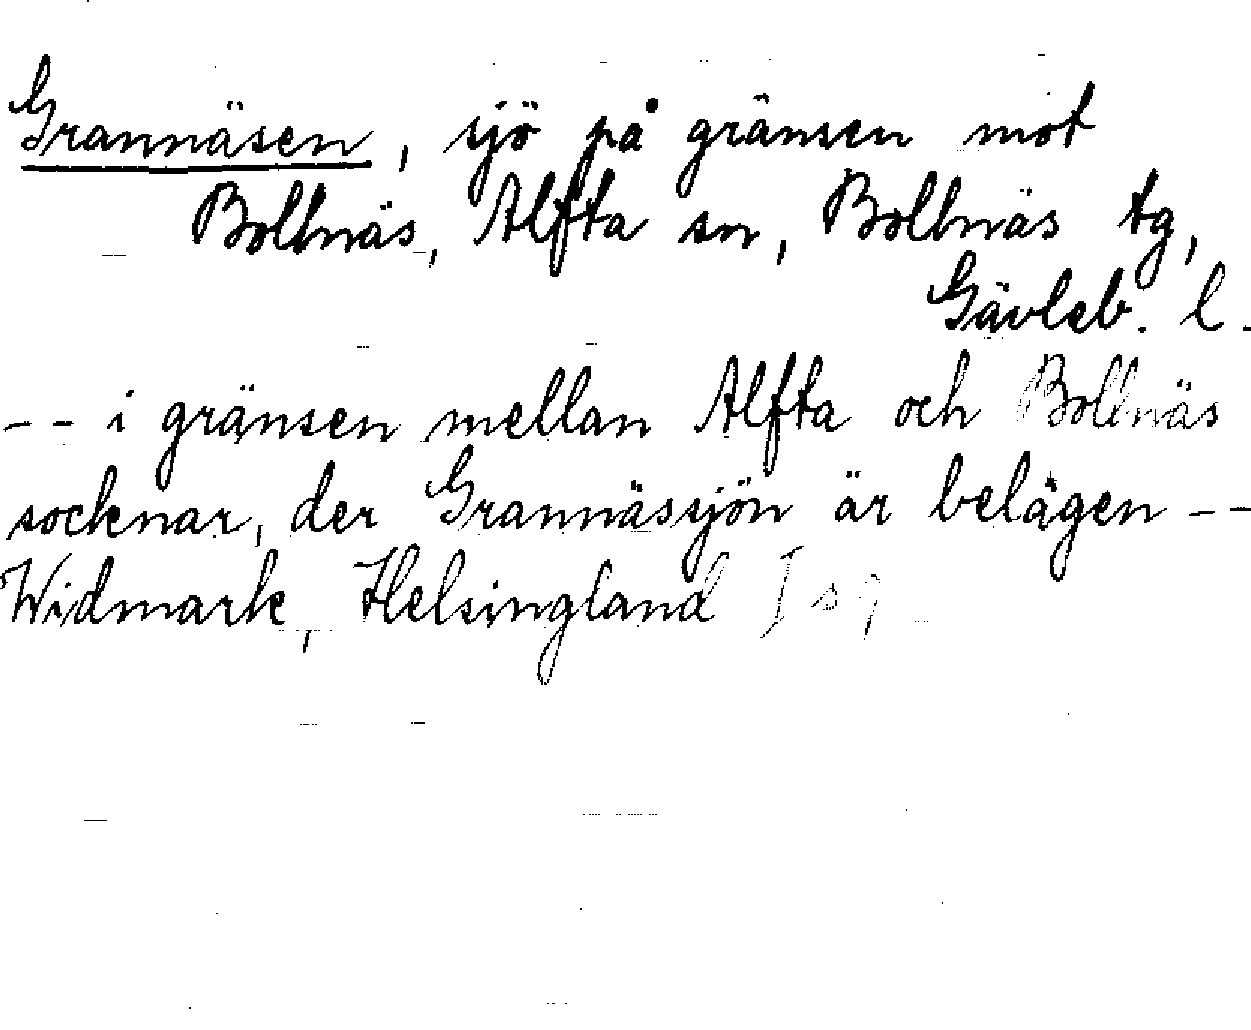 Grannäsen, sjö på gränsen mot
Bollnäs, Alfta sn, Bollnäs tg,
Gävleb. l.
-- i gränsen mellan Alfta och Bollnäs
socknar, der Grannäsjön är belägen --
Widmark, Helsingland I s